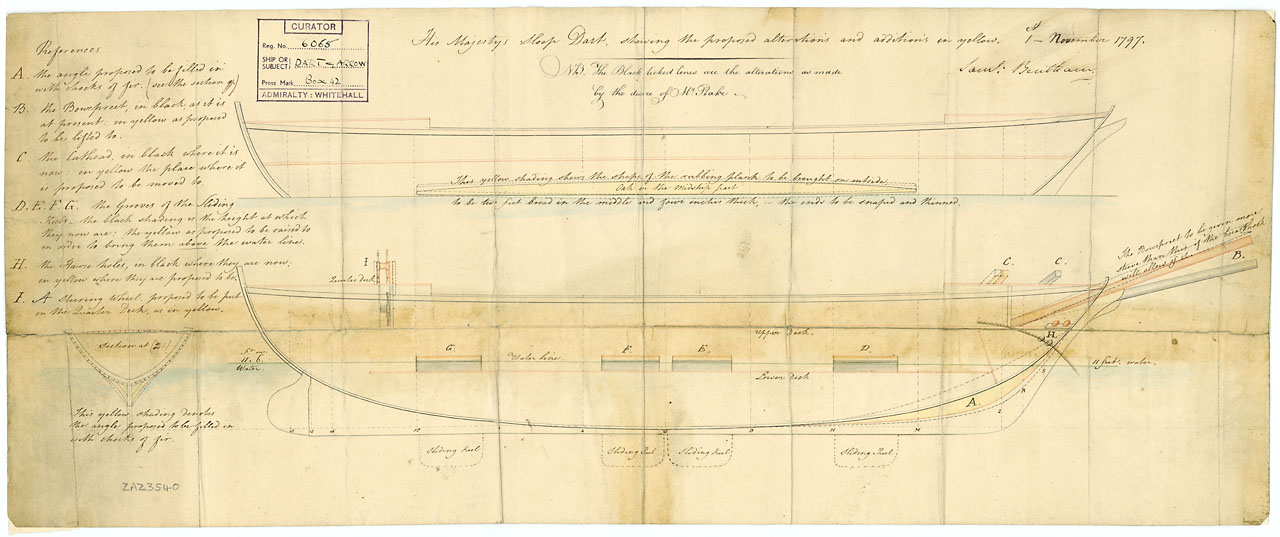 His Majestys Sloop Dart, shewing the proposed alterations and additions in yellow. 1st November 1797.
Saml. Bentham.
NB. The Black ticked lines are the alterations as made
by the desire of Mr. Peake.
CURATOR
Reg. No. 6065
SHIP OR SUBJECT: DART - ARROW
Press Mark Box 42
ADMIRALTY: WHITEHALL
References
A. the angle proposed to be filled in
with chocks of fir. (see the section
B. the Bowspreet, in black, as it is
at present: in yellow as proposed
to be lifted to.
C. the Cathead, in black where it is
now: in yellow the place where it
is proposed to be moved to.
D. E. F. G. the Grooves of the Sliding
Keels. the black shading is the height at which
they now are: the yellow as proposed to be raised to
in order to bring them above the water line.
H. the Hawse holes, in black where they are now:
in yellow where they are proposed to be.
I. A Steering Wheel, proposed to be put
on the Quarter Deck, as in yellow.
This yellow shading shews the shape of the rubbing plank to be brought on outside
Oak in the midship part
to be two feet broad in the middle and four inches thick - the ends to be snaped and thinned.
The Bowspreet to be even more
steeve than this if the breasthook
will allow of it.
I
Quarter deck
C. C.
B.
H.
Upper Deck.
G. F. E. D.
Water line
Lower Deck
11 feet water.
Ft In
11. 6.
Water.
A.
Section at
This yellow shading denotes
the angle proposed to be filled in
with chocks of fir
Sliding Keel Sliding Keel Sliding Keel Sliding Keel
ZAZ3540